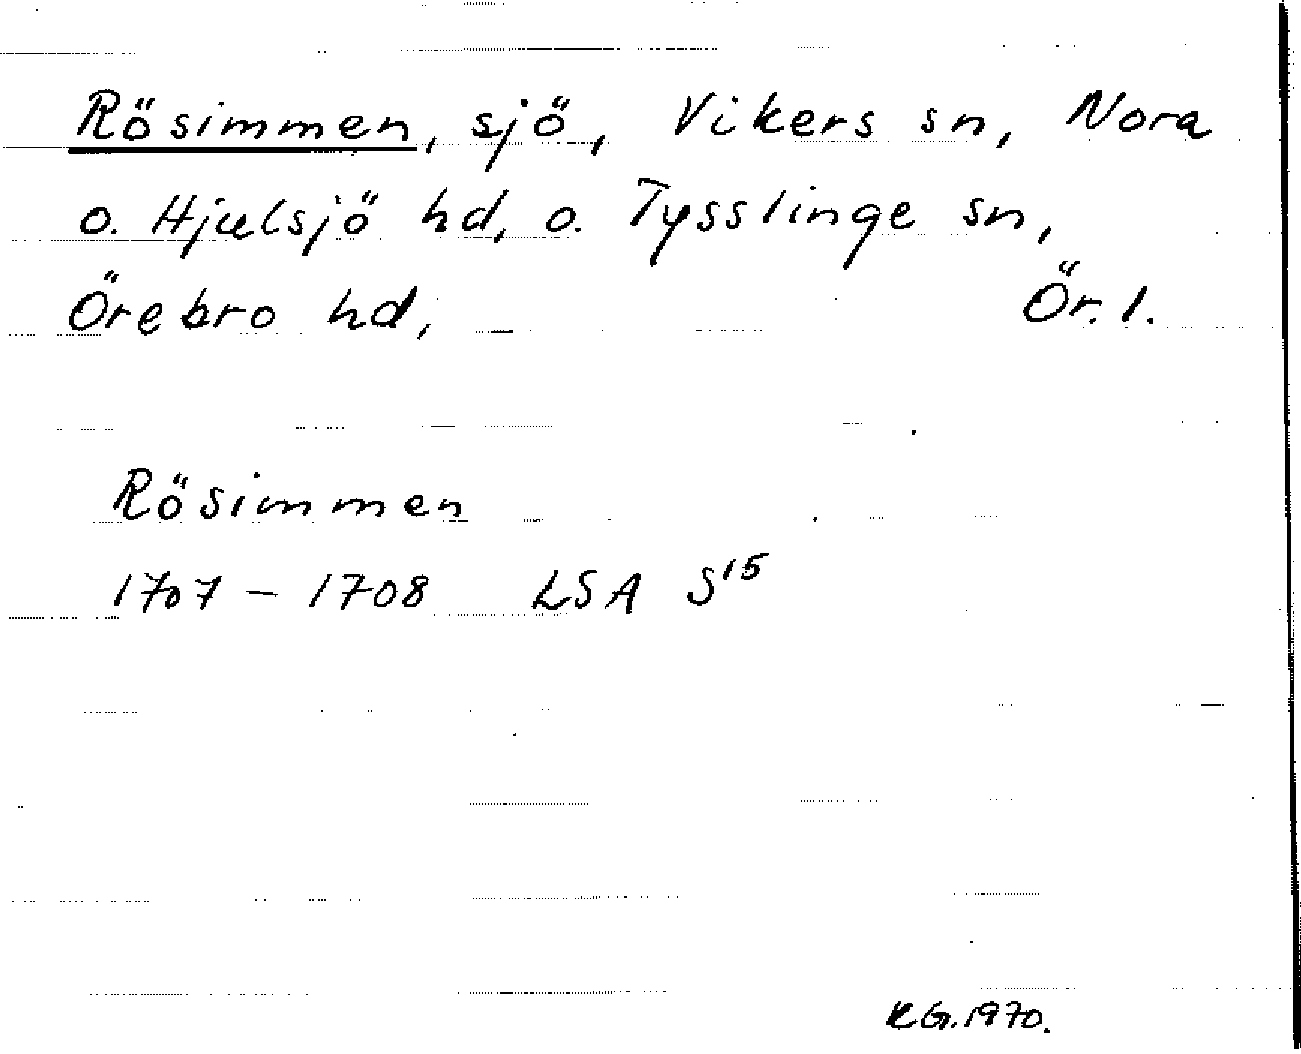 Rösimmen, sjö, Vikers sn, Nora
o. Hjulsjö hd, o. Tysslinge sn,
Örebro hd, Ör. l.
Rösimmen
1707 – 1708 LSA S¹⁵
RG. 1970.